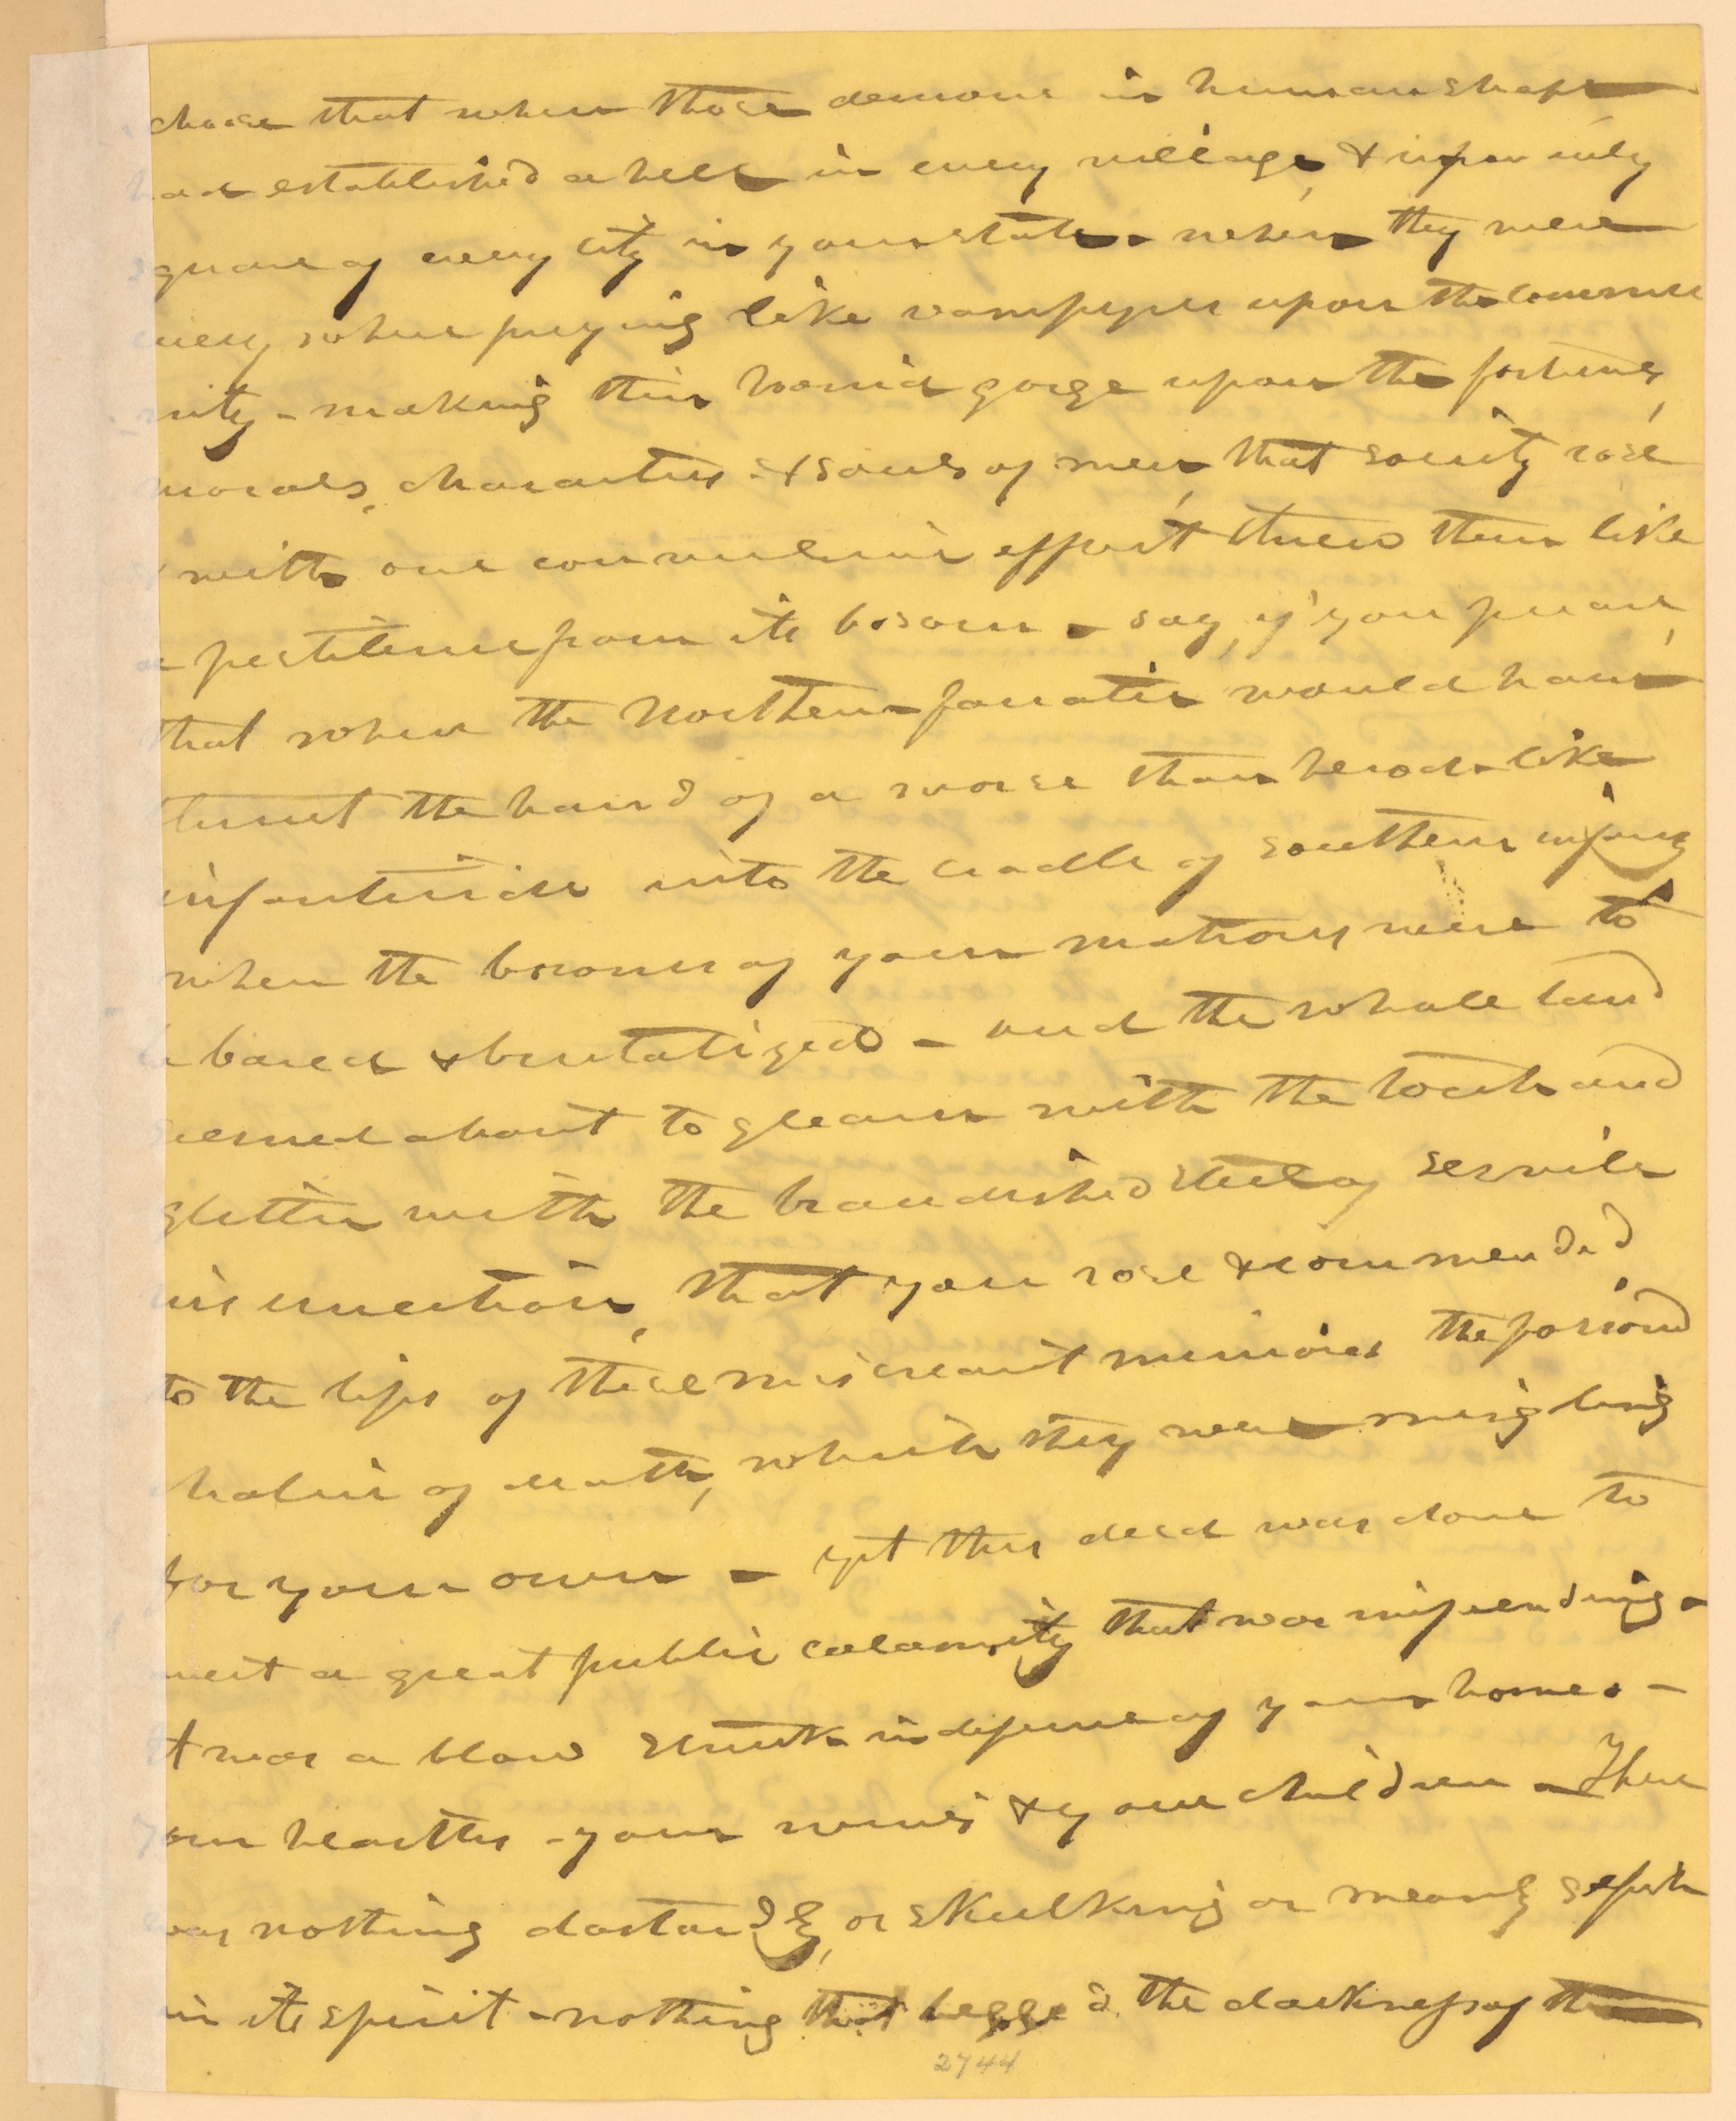 choose that when those demons in human shape
had established a hell in every village, & upon every
square of every city in your state - when they were
every where preying like vampyres upon the commu
nity - making their horrid gorge upon the fortunes,
morals, characters & souls of men, that society rose
& with one convulsive effort threw them like
a pestilence from its bosom - say, if you please,
that when the Northern fanatic would have
thrust the hand of a worse than herod-like
infanticide into the cradle of southern infancy
when the bosoms of your matrons were to
be bared & brutalized - and the whole land
seemed about to gleam with the torch and
glitter with the brandished steel of servile
insurrection, that you rose & commended
to the lips of these miscreant minions the poisond
chalice of death, which they were mingling
for your own - yet this deed was done to
avert a great public calamity that was impending -
it was a blow struck in defence of your homes -
your hearths - your wives & your children - There
was nothing dastardly, or skulking or meanly selfish
in its spirit - nothing that begged the darkness of the
2744